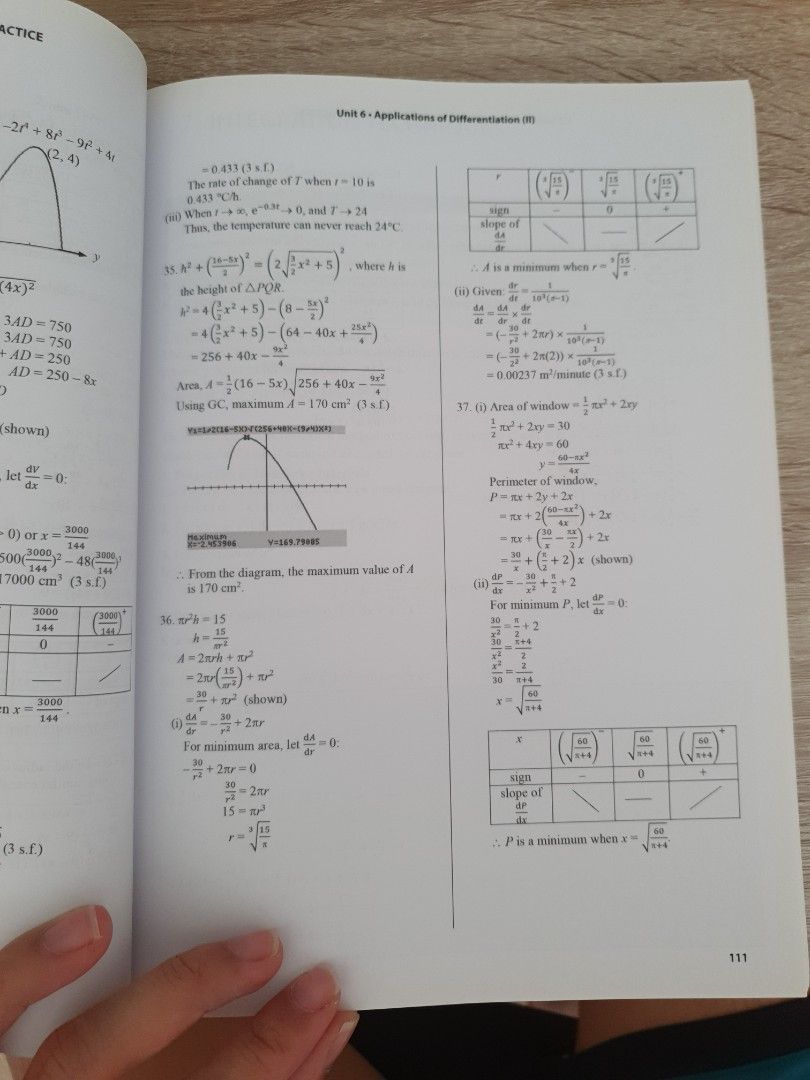 ACTICE
−2t⁴ + 8t³ − 9t² + 4t
(2, 4)
y
(4x)²
3AD = 750
3AD = 750
+ AD = 250
AD = 250 − 8x
(shown)
, let dV/dx = 0:
> 0) or x = 3000/144
500(3000/144)² − 48(3000/144)³
17000 cm³ (3 s.f.)
3000/144 (3000/144)⁺
0 −
en x = 3000/144.
(3 s.f.)
Unit 6 • Applications of Differentiation (II)
= 0.433 (3 s.f.)
The rate of change of T when t = 10 is
0.433 °C/h.
(iii) When t → ∞, e^(−0.3t) → 0, and T → 24
Thus, the temperature can never reach 24°C.
35. h² + ((16−5x)/2)² = (2√(3/2 x² + 5))², where h is
the height of △PQR.
h² = 4(3/2 x² + 5) − (8 − 5x/2)²
= 4(3/2 x² + 5) − (64 − 40x + 25x²/4)
= 256 + 40x − 9x²/4
Area, A = 1/2 (16 − 5x)√(256 + 40x − 9x²/4)
Using GC, maximum A = 170 cm² (3 s.f.)
Y1=1/2(16-5X)√(256+40X-(9/4)X²)
Maximum
X=-2.453906 Y=169.79085
∴ From the diagram, the maximum value of A
is 170 cm².
36. πr²h = 15
h = 15/πr²
A = 2πrh + πr²
= 2πr(15/πr²) + πr²
= 30/r + πr² (shown)
(i) dA/dr = −30/r² + 2πr
For minimum area, let dA/dr = 0:
−30/r² + 2πr = 0
30/r² = 2πr
15 = πr³
r = ³√(15/π)
r (³√(15/π))⁻ ³√(15/π) (³√(15/π))⁺
sign − 0 +
slope of
dA/dr
∴ A is a minimum when r = ³√(15/π).
(ii) Given: dr/dt = 1/(10³(π−1))
dA/dt = dA/dr × dr/dt
= (−30/r² + 2πr) × 1/(10³(π−1))
= (−30/2² + 2π(2)) × 1/(10³(π−1))
= 0.00237 m²/minute (3 s.f.)
37. (i) Area of window = 1/2 πx² + 2xy
1/2 πx² + 2xy = 30
πx² + 4xy = 60
y = (60−πx²)/4x
Perimeter of window,
P = πx + 2y + 2x
= πx + 2((60−πx²)/4x) + 2x
= πx + (30/x − πx/2) + 2x
= 30/x + (π/2 + 2) x (shown)
(ii) dP/dx = −30/x² + π/2 + 2
For minimum P, let dP/dx = 0:
30/x² = π/2 + 2
30/x² = (π+4)/2
x²/30 = 2/(π+4)
x = √(60/(π+4))
x (√(60/(π+4)))⁻ √(60/(π+4)) (√(60/(π+4)))⁺
sign − 0 +
slope of
dP/dx
∴ P is a minimum when x = √(60/(π+4)).
111